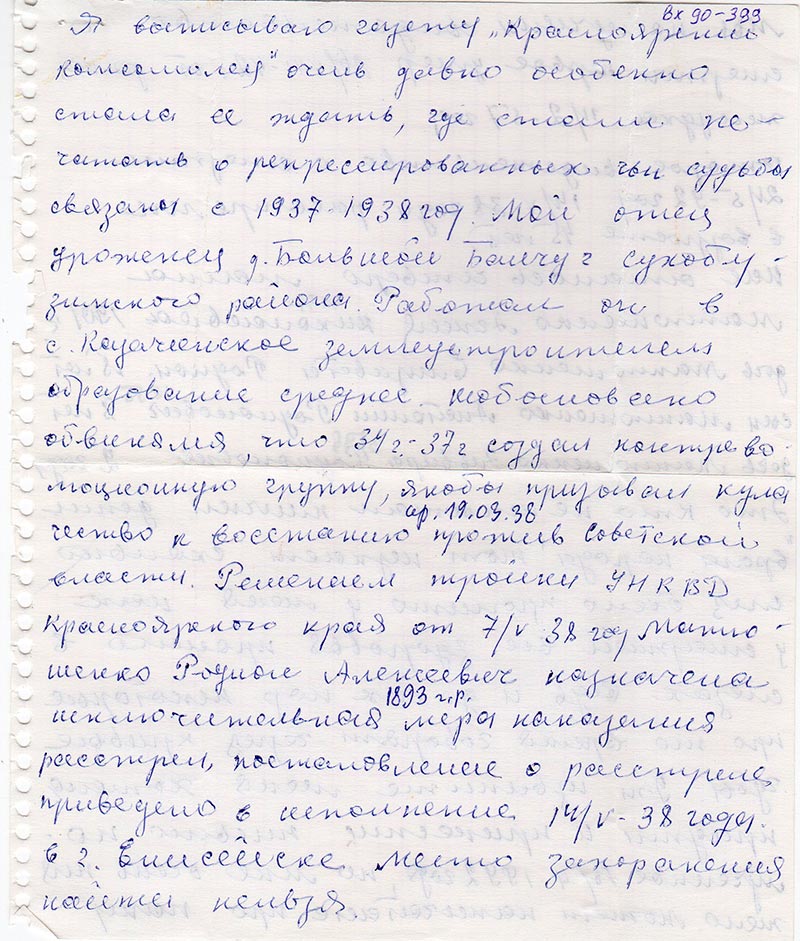 Вх 90-399
Я выписываю газету „Красноярский
комсомолец" очень давно особенно
стала ее ждать, где стали пе-
чатать о репрессированных чьи судьбы
связаны с 1937-1938 год. Мой отец
уроженец д. Большой Бальчуг Сухобу-
зимского района. Работал он в
с. Казаченское землеустроителем
образование среднее
обвинялся, что 34г-37г создал контрево-
люционную группу, якобы призывал кула
ар. 19.03.38
чество к восстанию против Советской
власти. Решением тройки УНКВД
Красноярского края от 7/V 38 год Матю-
шенко Родион Алексеевич назначена
1893 г.р.
исключительная мера наказания
расстрел, постановление о расстреле
приведено в исполнение 14/V-38 года
в г. Енисейске место захоранения
найти нельзя